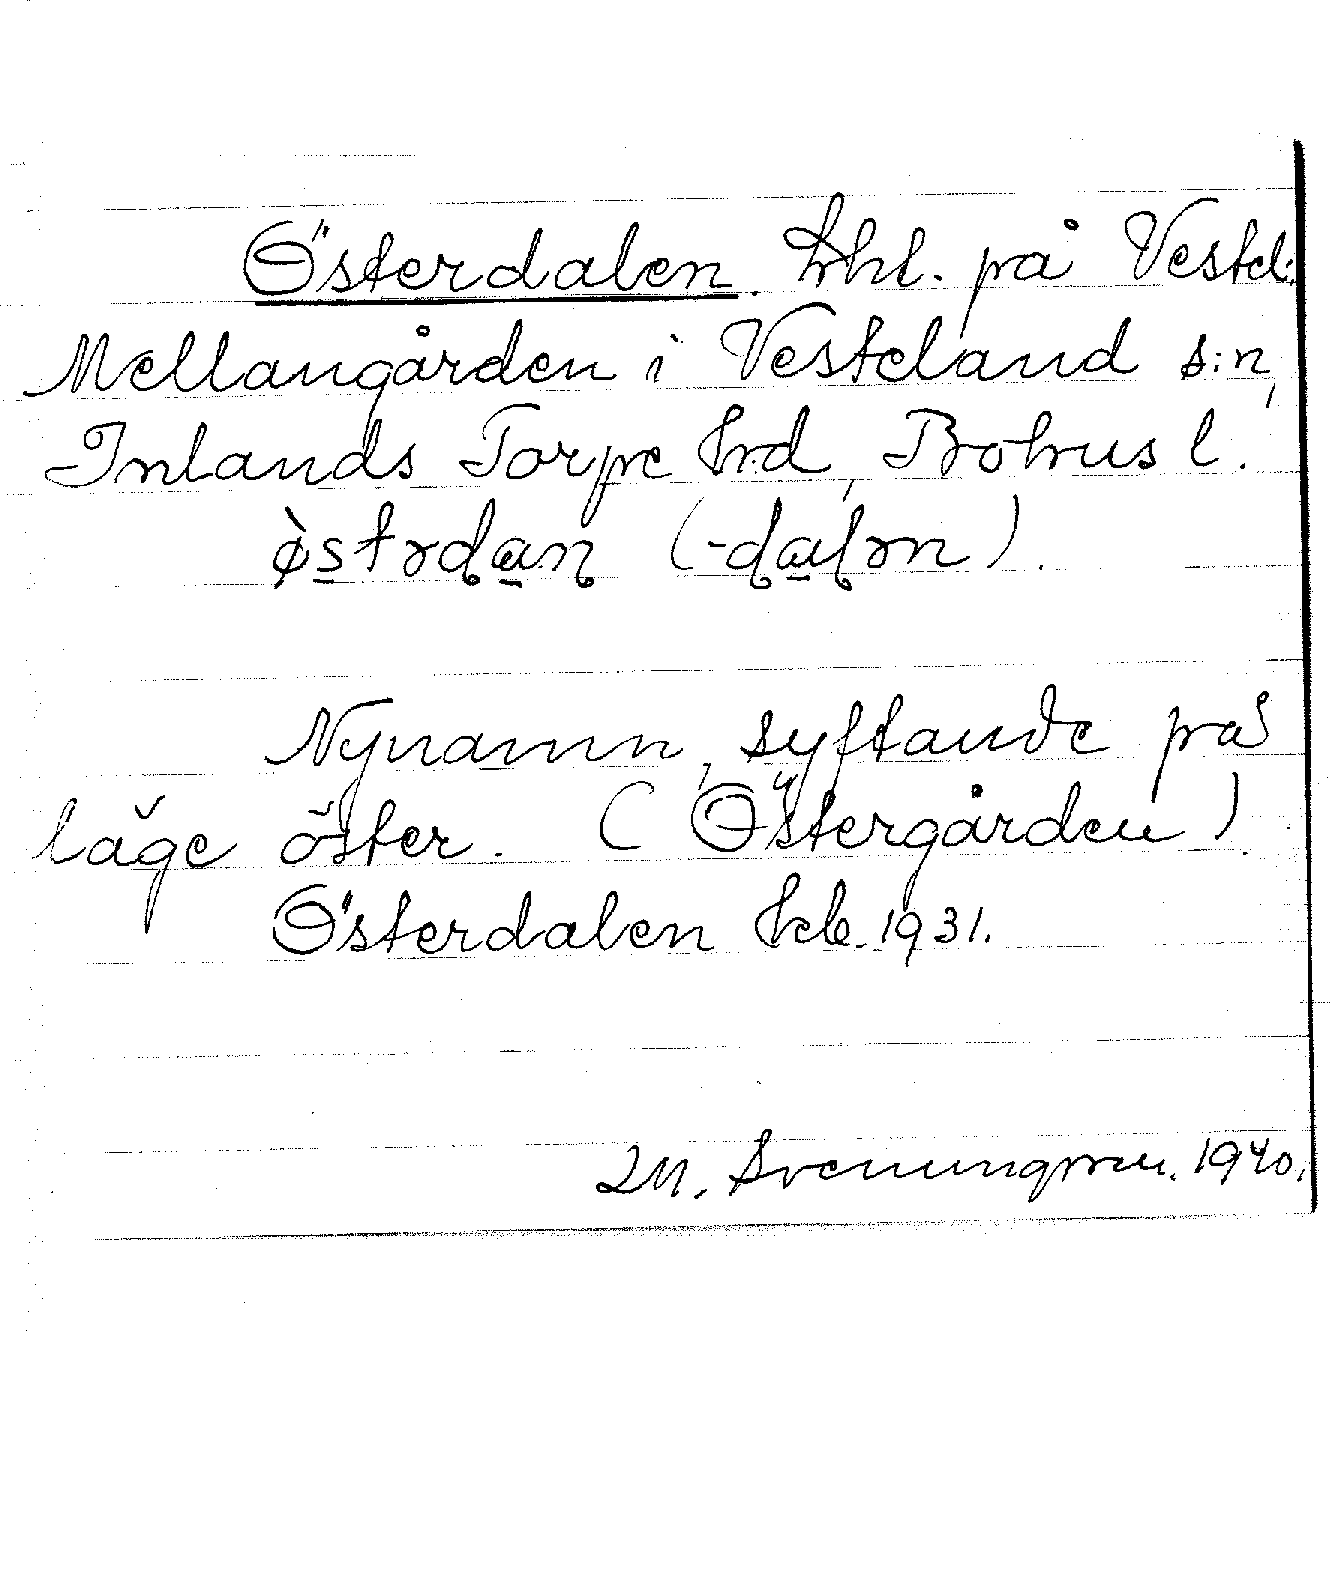 Österdalen. lht. på Vestel.
Mellangården i Vesteland s:n,
Inlands Torpe hd, Bohus l.
ø̀stərdaɳ (-daɭən).
Nynamn, syftande på
läge öster. (Östergården).
Österdalen kb. 1931.
M. Svenungsson. 1940.